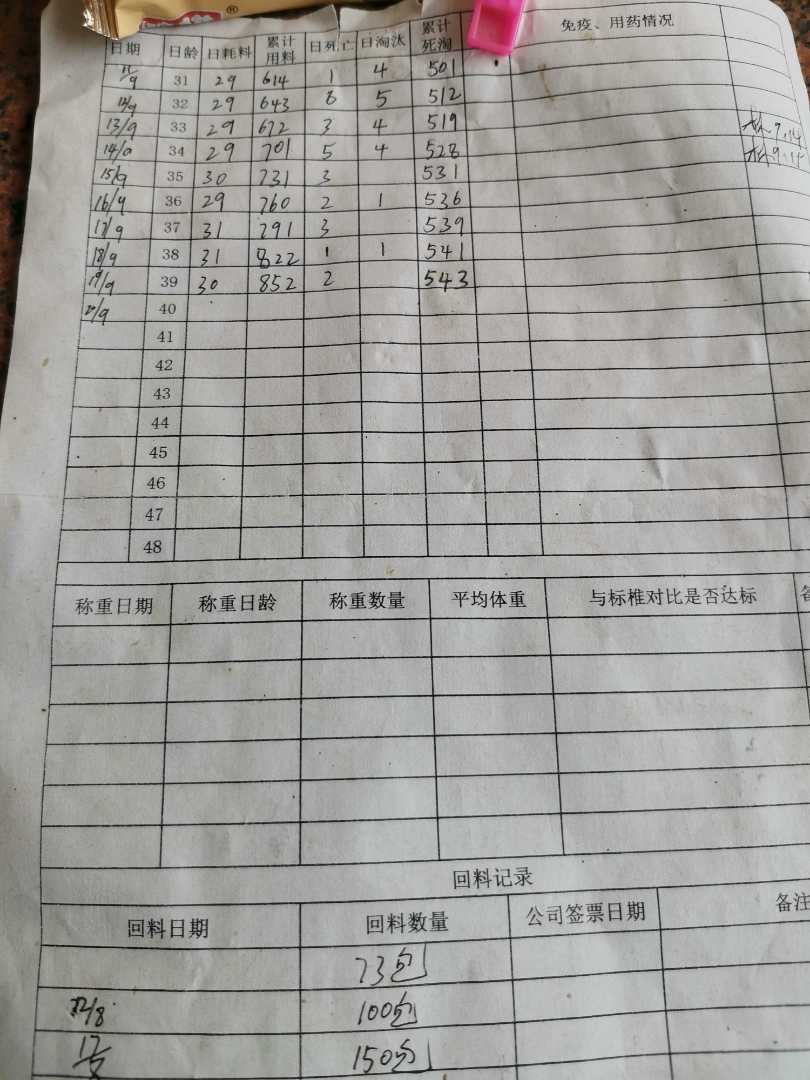 ®
日期 日龄 日耗料 累计用料 日死亡 日淘汰 累计死淘 免疫、用药情况
11/9 31 29 614 1 4 501
12/9 32 29 643 8 5 512
13/9 33 29 672 3 4 519
14/9 34 29 701 5 4 528
15/9 35 30 731 3 531
16/9 36 29 760 2 1 536
17/9 37 31 791 3 539
18/9 38 31 822 1 1 541
19/9 39 30 852 2 543
20/9 40
41
42
43
44
45
46
47
48
称重日期 称重日龄 称重数量 平均体重 与标椎对比是否达标
回料记录
回料日期 回料数量 公司签票日期 备注
73包
100包
150包